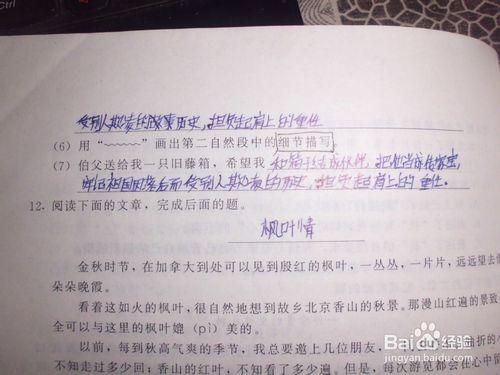 Ctrl
受别人欺凌的故事历史,担负起肩上的重任
(6) 用“~~~~~”画出第二自然段中的细节描写。
(7) 伯父送给我一只旧藤箱,希望我和箱子结成伙伴,把它当成传家宝,
牢记祖国因落后而受别人欺凌的历史,担负起肩上的重任。
12. 阅读下面的文章,完成后面的题。
枫叶情
金秋时节,在加拿大到处可以见到殷红的枫叶,一丛丛,一片片,远远望去
朵朵晚霞。
看着这如火的枫叶,很自然地想到故乡北京香山的秋景。那漫山红遍的景致
全可以与这里的枫叶媲(pì)美的。
以前,每到秋高气爽的季节,我总要邀上几位朋友,曲折的小
不知走过多少回;香山的红叶,不知看了多少遍。但是,每次游览都会在心中
Baidu经验
jingyan.baidu.com